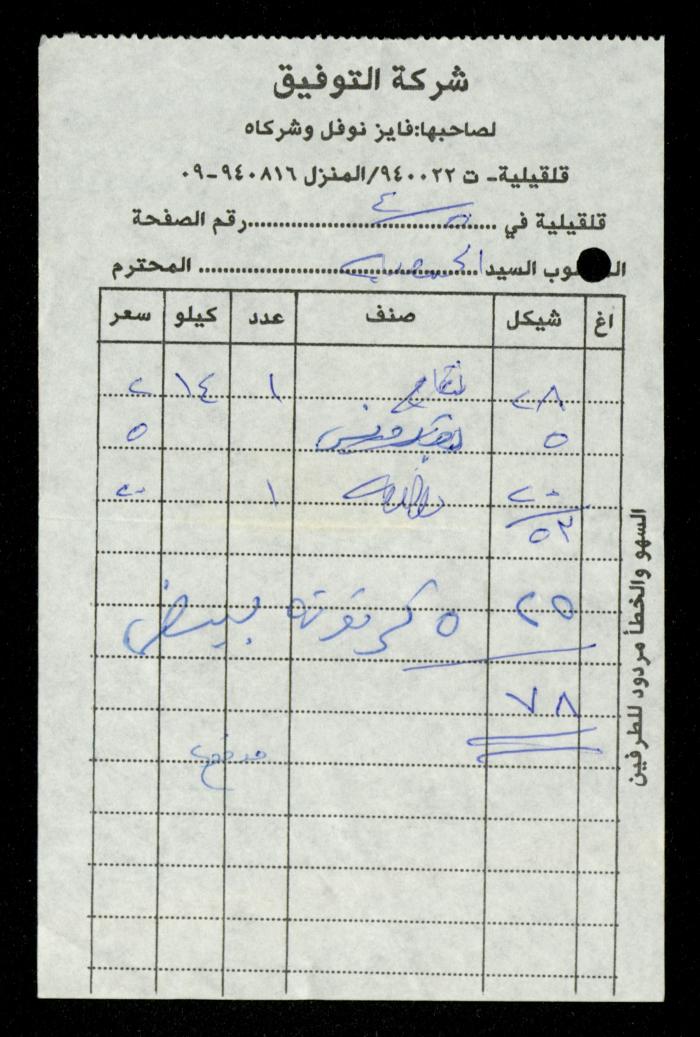 شركة التوفيق
لصاحبها:فايز نوفل وشركاه
قلقيلية- ت ٩٤٠٠٢٢/المنزل ٩٤٠٨١٦-٠٩
قلقيلية في ........ رقم الصفحة
السيد ........ المحترم
اغ شيكل صنف عدد كيلو سعر
٢٨ تفاح ١ ١٤ ٢
٥ بقدونس ٥
٢٠ ١ ٢٠
٥٣
٢٥ ٥ كرتونه بيض
٧٨
مدفوع
السهو والخطأ مردود للطرفين